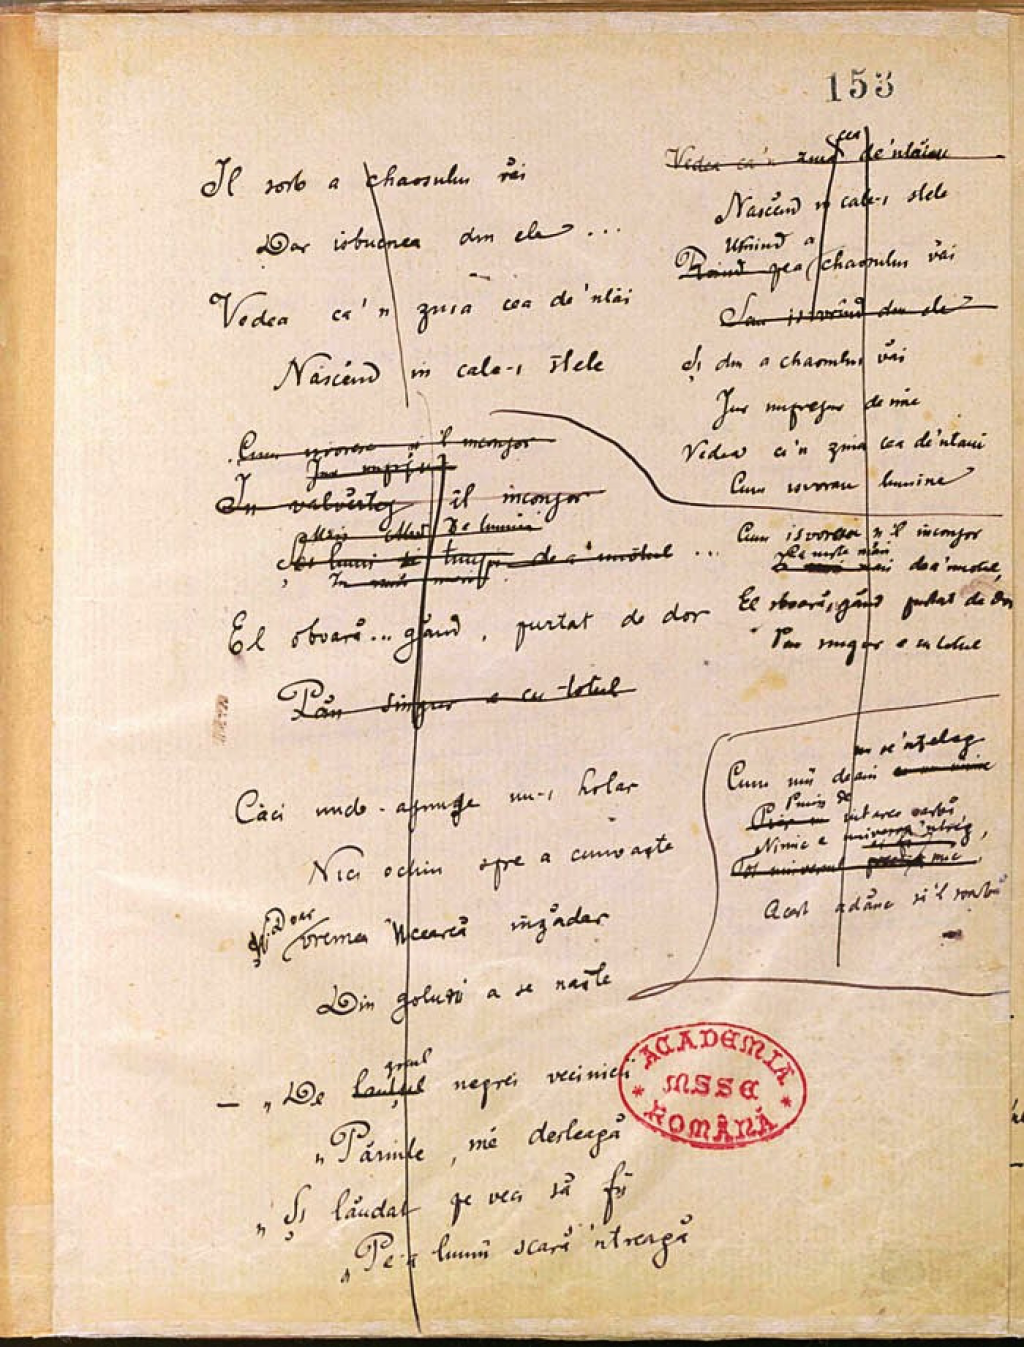 153
Il sorb a chaosului văi
Dar isbucnea din ele ...
Vedea ca'n ziua cea de'ntâi
Născând in cale-i stele
Cum isvorăsc il inconjor
Jur imprejur
In valvârtej îl inconjor
de lumini
de a'notul ...
El sboară... gând, purtat de dor
Păn singur e cu totul
Căci unde-ajunge nu-i hotar
Nici ochiu spre a cunoaște
Și Doar
vremea 'ncearcă inzădar
Din goluri a se naște
greul
— „De lanțul negrei vecinicii
„Părinte, mĕ desleagă
„Și lăudat pe veci să fii
„Pe-a lumii scară 'ntreagă
cea
Vedea ca'n ziua de'ntăiu
Născând in cale-i stele
Umind a
pe a chaosului văi
Sau isvorînd din ele
Și din a chaosului văi
Jur imprejur de sine
Vedea ca'n ziua cea de'ntaiu
Cum isvorau lumine
Cum isvorau il inconjor
Ca niște mări de a'notul,
El sboară, gând purtat de dor
Păn singur e cu totul
se'nțeleg
Cum mii de ani
Nimic e universu 'ntreg,
Tot universul mic,
Acest adânc
ACADEMIA
MSSE
ROMÂNĂ